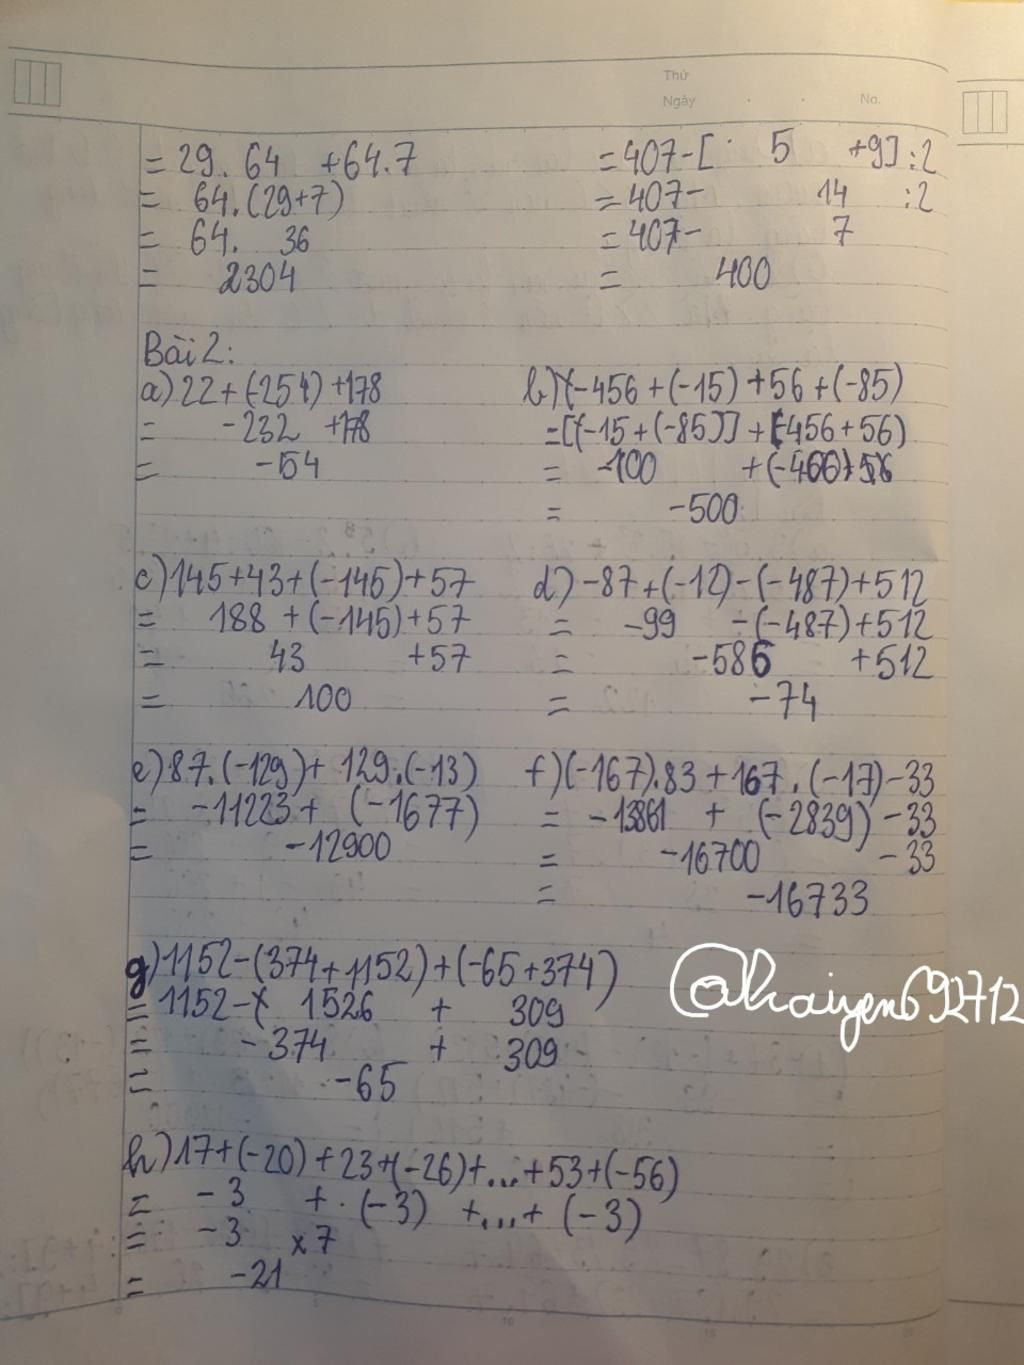 Thứ
Ngày No.
= 29. 64 +64.7
= 64.(29+7)
= 64. 36
= 2304
=407-[ 5 +9]:2
=407- 14 :2
=407- 7
= 400
Bài 2:
a) 22+(-254)+178
= -232 +178
= -54
b) (-456+(-15)+56+(-85)
=[(-15+(-85)]+(-456+56)
= -100 +(-400)
= -500
c) 145+43+(-145)+57
= 188 +(-145)+57
= 43 +57
= 100
d) -87+(-12)-(-487)+512
= -99 -(-487)+512
= -586 +512
= -74
e) 87.(-129)+ 129.(-13)
= -11223+ (-1677)
= -12900
f) (-167).83+167.(-17)-33
= -13861 + (-2839) -33
= -16700 -33
= -16733
g) 1152-(374+1152)+(-65+374)
= 1152- 1526 + 309
= -374 + 309
= -65
@haiyen692712
h) 17+(-20)+23+(-26)+...+53+(-56)
= -3 + (-3) +...+ (-3)
= -3 x7
= -21